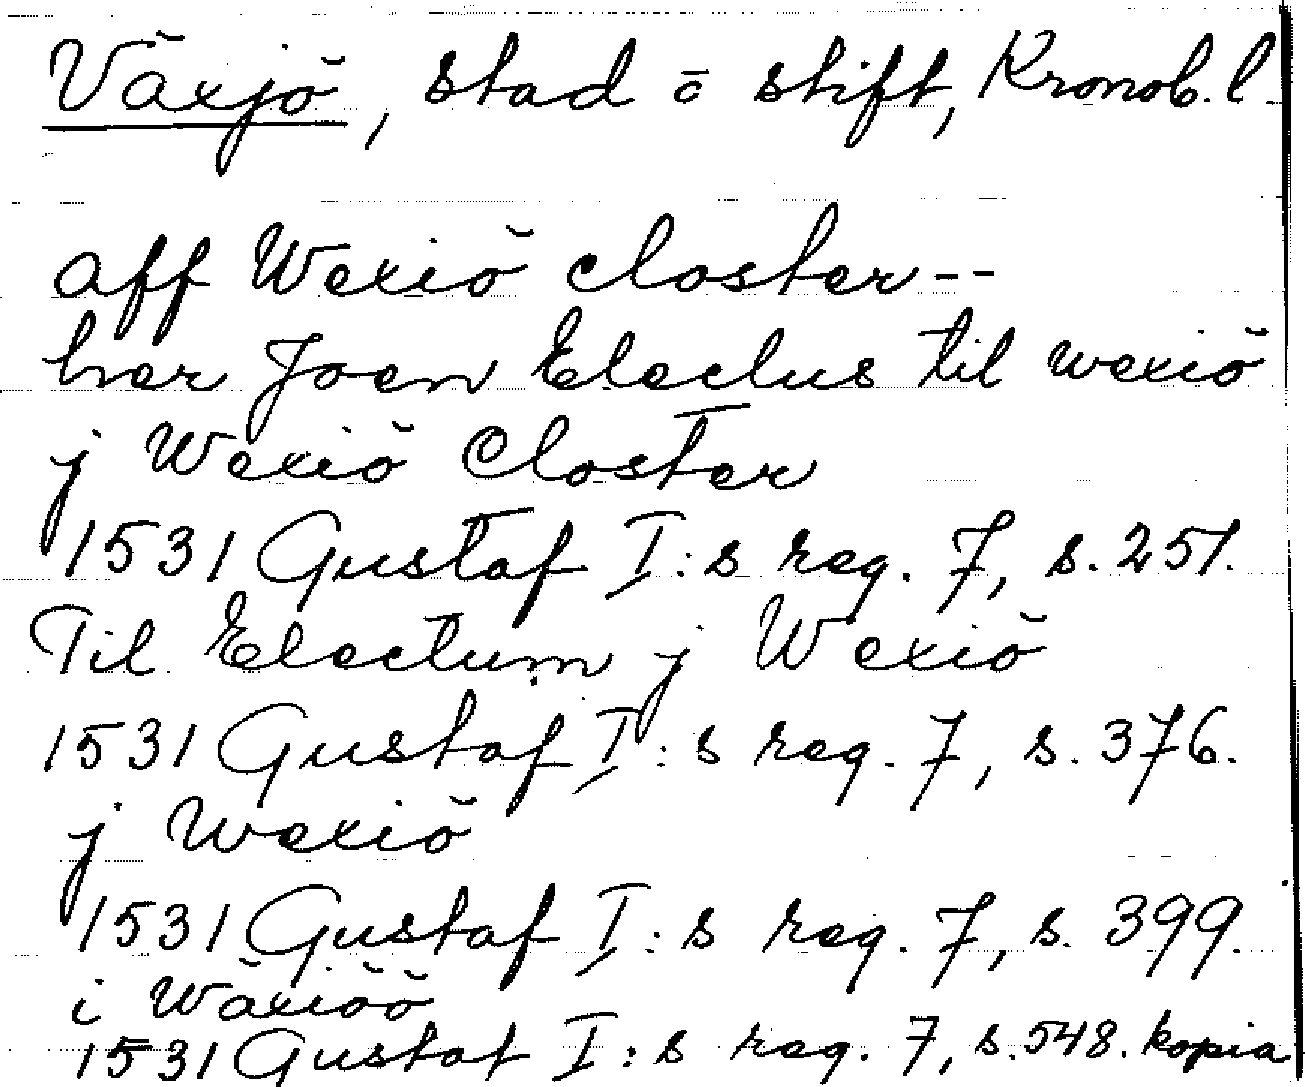 Växjö, stad ö stift, Kronob. l
aff Wexiö closter--
her Joen Electus til wexiö
j Wexiö Closter
1531 Gustaf I:s reg. 7, s. 251.
Til Electum j Wexiö
1531 Gustaf I:s reg. 7, s. 376.
j Wexiö
1531 Gustaf I:s reg. 7, s. 399.
i Wäxiöö
1531 Gustaf I:s reg. 7, s. 548. kopia